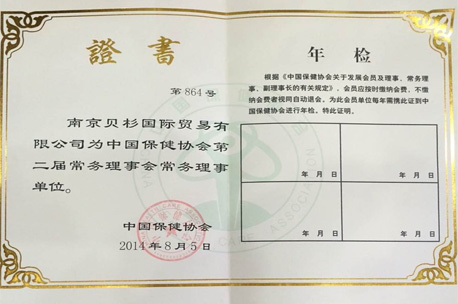 證書
第 864 号
南京贝杉国际贸易有
限公司为中国保健协会第
二届常务理事会常务理事
单位。
中国保健协会
2014 年 8 月 5 日
年检
根据《中国保健协会关于发展会员及理事、常务理
事、副理事长的有关规定》，会员应按时缴纳会费、不缴
纳会费者视同自动退会。为此会员单位每年需携此证到中
国保健协会进行年检。特此证明。
年 月 日
年 月 日
年 月 日
年 月 日
ASSOCIATION